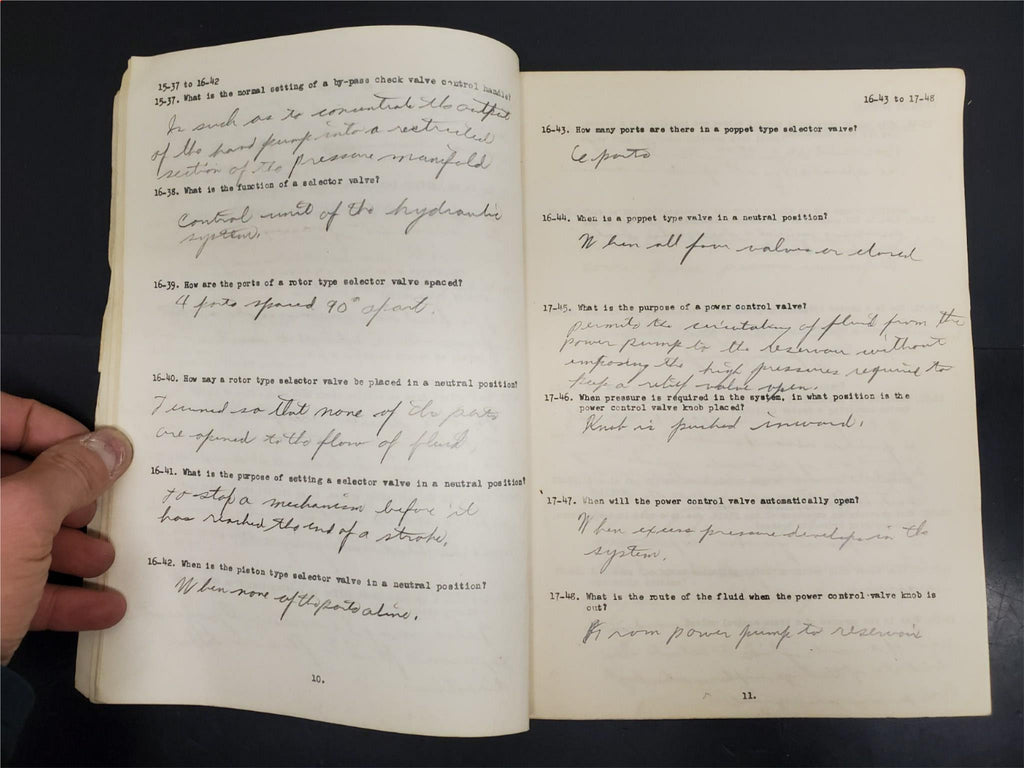 15-37 to 16-42
15-37. What is the normal setting of a by-pass check valve control handle?
Is such as to concentrate the output
of the hand pump into a restricted
section of the pressure manifold
16-38. What is the function of a selector valve?
Control unit of the hydraulic
system.
16-39. How are the ports of a rotor type selector valve spaced?
4 ports spaced 90° apart.
16-40. How may a rotor type selector valve be placed in a neutral position?
Turned so that none of the ports
are opened to the flow of fluid.
16-41. What is the purpose of setting a selector valve in a neutral position?
to stop a mechanism before it
has reached the end of a stroke.
16-42. When is the piston type selector valve in a neutral position?
When none of the ports aline.
10.
16-43 to 17-48
16-43. How many ports are there in a poppet type selector valve?
6 ports
16-44. When is a poppet type valve in a neutral position?
When all four valves or closed
17-45. What is the purpose of a power control valve?
permits the of fluid from the
power pump to the reservoir without
imposing the high pressures required to
keep a relief valve open.
17-46. When pressure is required in the system, in what position is the
power control valve knob placed?
Knob is pushed inward.
17-47. When will the power control valve automatically open?
When excess pressure develops in the
system.
17-48. What is the route of the fluid when the power control valve knob is
out?
From power pump to reservoir
11.